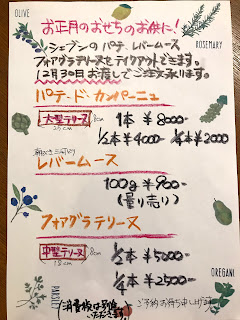 OLIVE
お正月のおせちのお供に!
ROSEMARY
シェブンの パテ、レバームース
フォアグラテリーヌをテイクアウトできます。
12月30日お渡しでご注文承ります。
パテ・ド・カンパーニュ
大型テリーヌ 8cm 1本 ¥8000-
25cm 1/2本 ¥4000- 1/4本 ¥2000
レバームース
100g ¥900-
(量り売り)
フォアグラテリーヌ
中型テリーヌ 8cm 1/2本 ¥5000-
18cm 1/4本 ¥2500-
OREGANO
PANSY
ご予約お待ち申し上げ